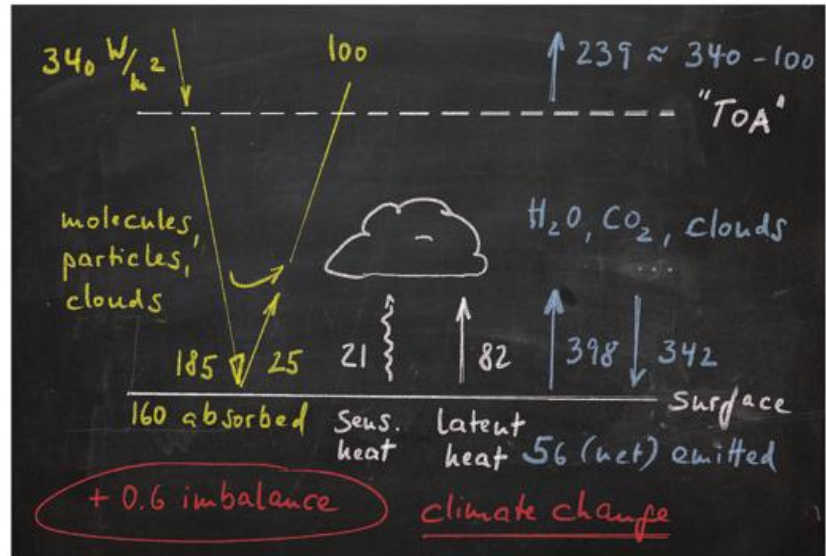 340 W/m²
100
239 ≈ 340 - 100
"TOA"
molecules,
particles,
clouds
H₂O, CO₂, clouds
...
185
25
21
82
398
342
Surface
160 absorbed
Sens.
heat
Latent
heat
56 (net) emitted
+ 0.6 imbalance
climate change